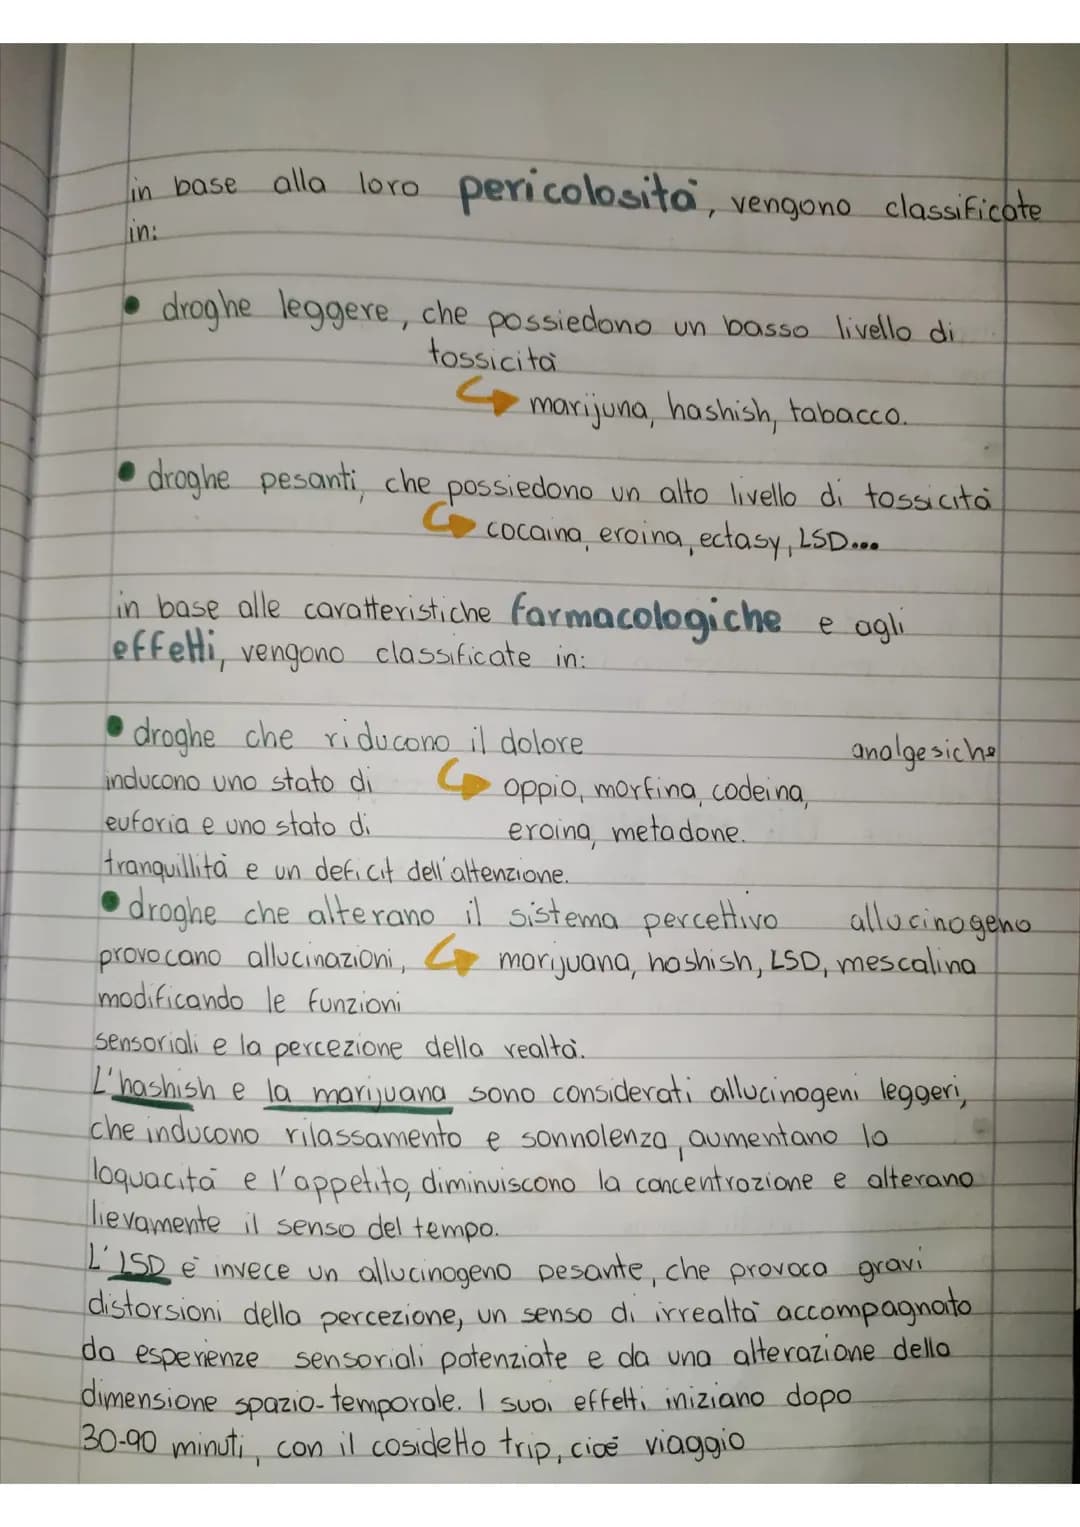 in base alla loro pericolosità, vengono classificate
in:
• droghe leggere, che possiedono un basso livello di
tossicità
marijuna, hashish, tabacco.
• droghe pesanti, che possiedono un alto livello di tossicità
cocaina, eroina, ectasy, LSD...
in base alle caratteristiche farmacologiche e agli
effetti, vengono classificate in:
• droghe che riducono il dolore analgesiche
inducono uno stato di oppio, morfina, codeina,
euforia e uno stato di eroina, metadone.
tranquillità e un deficit dell'attenzione.
• droghe che alterano il sistema percettivo allucinogeno
provocano allucinazioni, marijuana, hashish, LSD, mescalina
modificando le funzioni
sensoriali e la percezione della realtà.
L'hashish e la marijuana sono considerati allucinogeni leggeri,
che inducono rilassamento e sonnolenza, aumentano la
loquacità e l'appetito, diminuiscono la concentrazione e alterano
lievamente il senso del tempo.
L'LSD è invece un allucinogeno pesante, che provoca gravi
distorsioni della percezione, un senso di irrealtà accompagnato
da esperienze sensoriali potenziate e da una alterazione della
dimensione spazio-temporale. I suoi effetti iniziano dopo
30-90 minuti, con il cosidetto trip, cioè viaggio